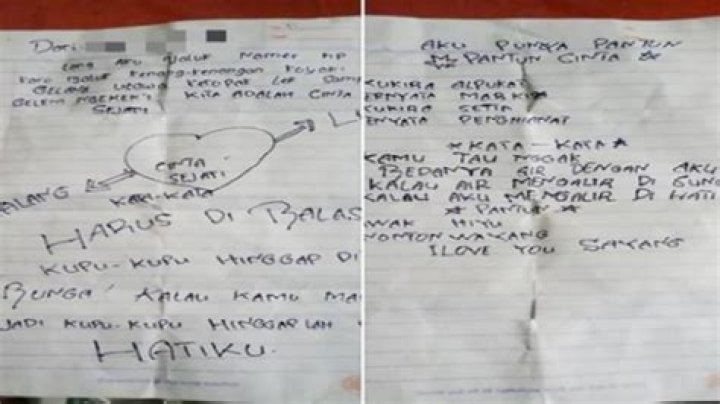 Dari:
AKU JALUK NAMER HP
KARO JALUK KENANG-KENANGAN KOYOK:
GELANG UTAWA KETOPAK LEK SAMP
GELEM NGEKEK'I KITA ADALAH CINTA
SEJATI
CINTA
SEJATI
ALANG
KAKI-KATA
HARUS DI BALAS
KUPU-KUPU HINGGAP DI
BUNGA KALAU KAMU MA
JADI KUPU-KUPU HINGGAPLAH
HATIKU.
AKU PUNYA PANTUN
PANTUN CINTA
KUKIRA ALPUKAT
ERNYATA MARKISA
KUKIRA SETIA
ENYATA PENGHIANAT
KATA-KATA
KAMU TAU NGGAK
BEDANYA AIR DENGAN AKU
KALAU AIR MENGALIR DI GUNU
KALAU AKU MENGALIR DI HATI
PANTUN
AWAK HIYU
NONTON WAYANG
I LOVE YOU SAYANG